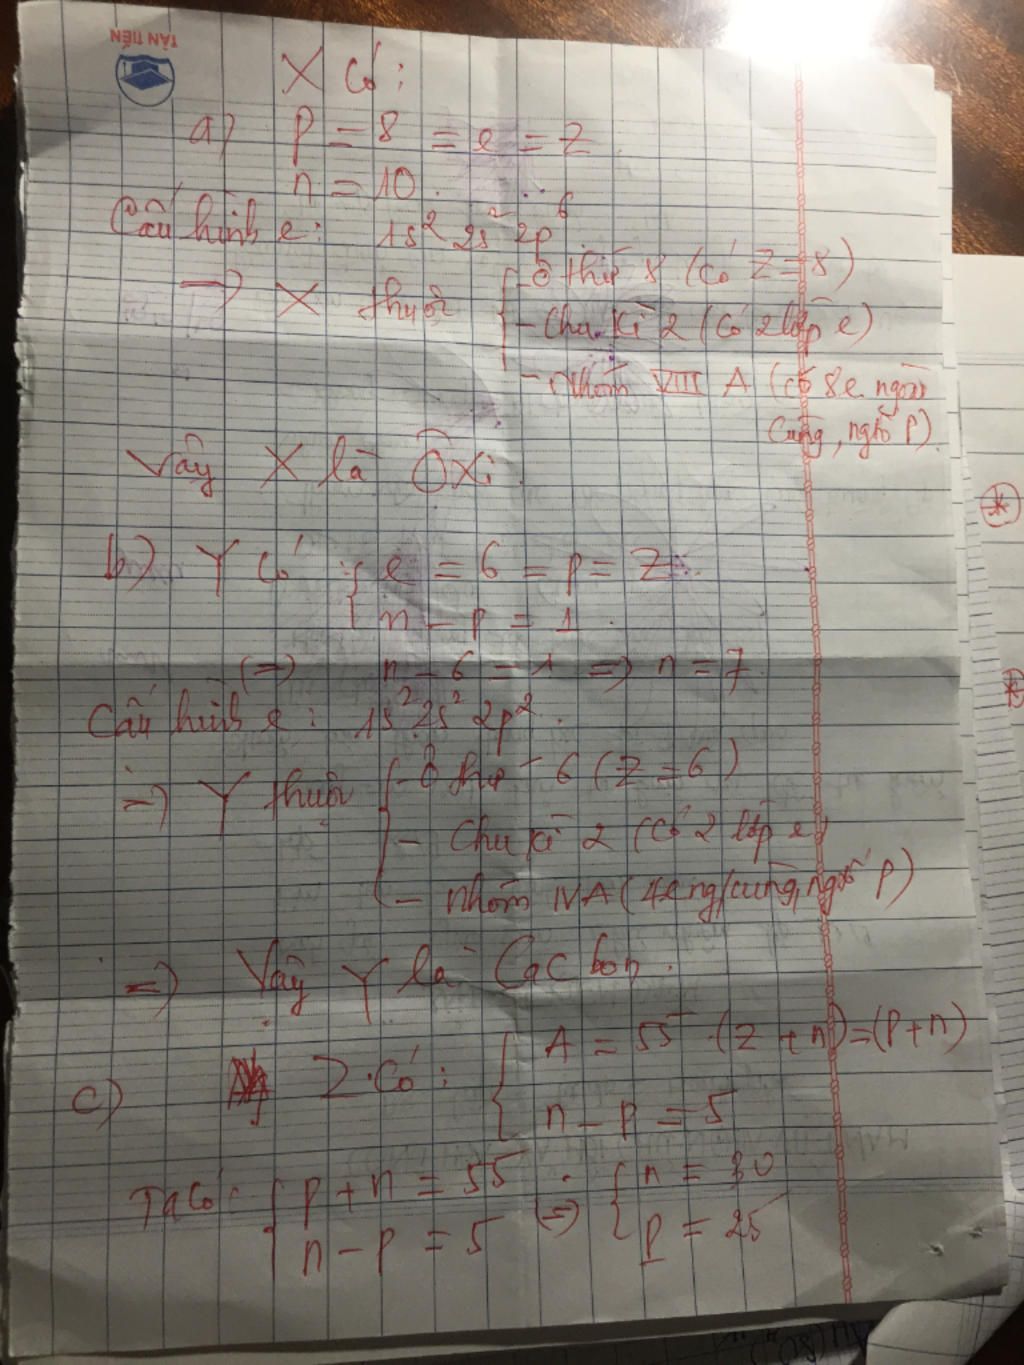 TÂN TIẾN
X có:
a) p = 8 = e = Z
n = 10.
Cấu hình e: 1s² 2s² 2p⁶
=> X thuộc { - Ô thứ 8 (có Z = 8)
- Chu kì 2 (có 2 lớp e)
- Nhóm VIII A (có 8e ngoài
cùng, ngtố P)
Vậy X là Ôxi.
b) Y có { e = 6 = p = Z
n - p = 1.
(=>) n - 6 = 1 => n = 7
Cấu hình e: 1s² 2s² 2p².
=> Y thuộc { - Ô thứ 6 (Z = 6)
- Chu kì 2 (có 2 lớp e)
- Nhóm IVA (4e ng/cùng, ngtố P)
=> Vậy Y là Cacbon.
c) Z có: { A = 55 (Z + n) = (P + n)
n - p = 5
Ta có: { p + n = 55 <=> { n = 30
n - p = 5 p = 25